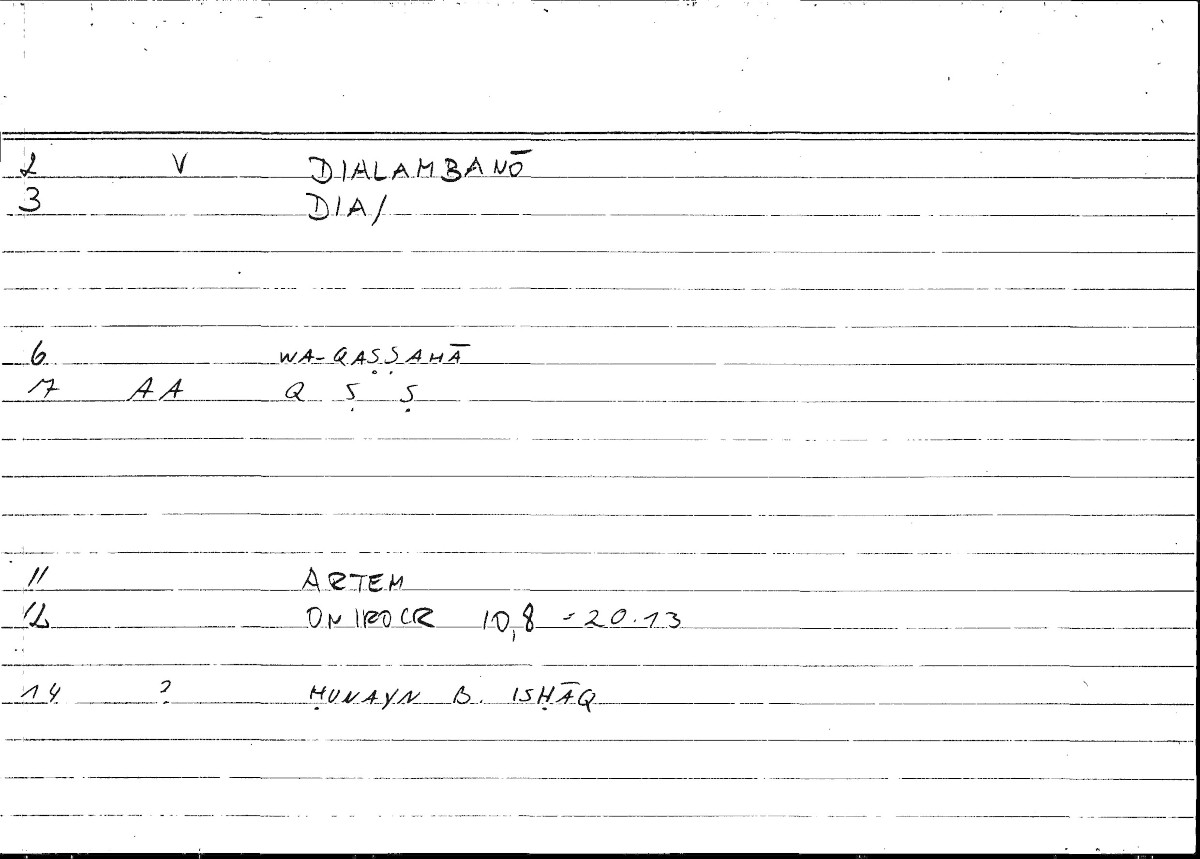 2 V DIALAMBANŌ
3 DIA/
6 WA-QAṢṢAHĀ
7 AA Q Ṣ Ṣ
11 ARTEM
12 ONIROCR 10,8 = 20.13
14 ? ḤUNAYN B. ISḤĀQ